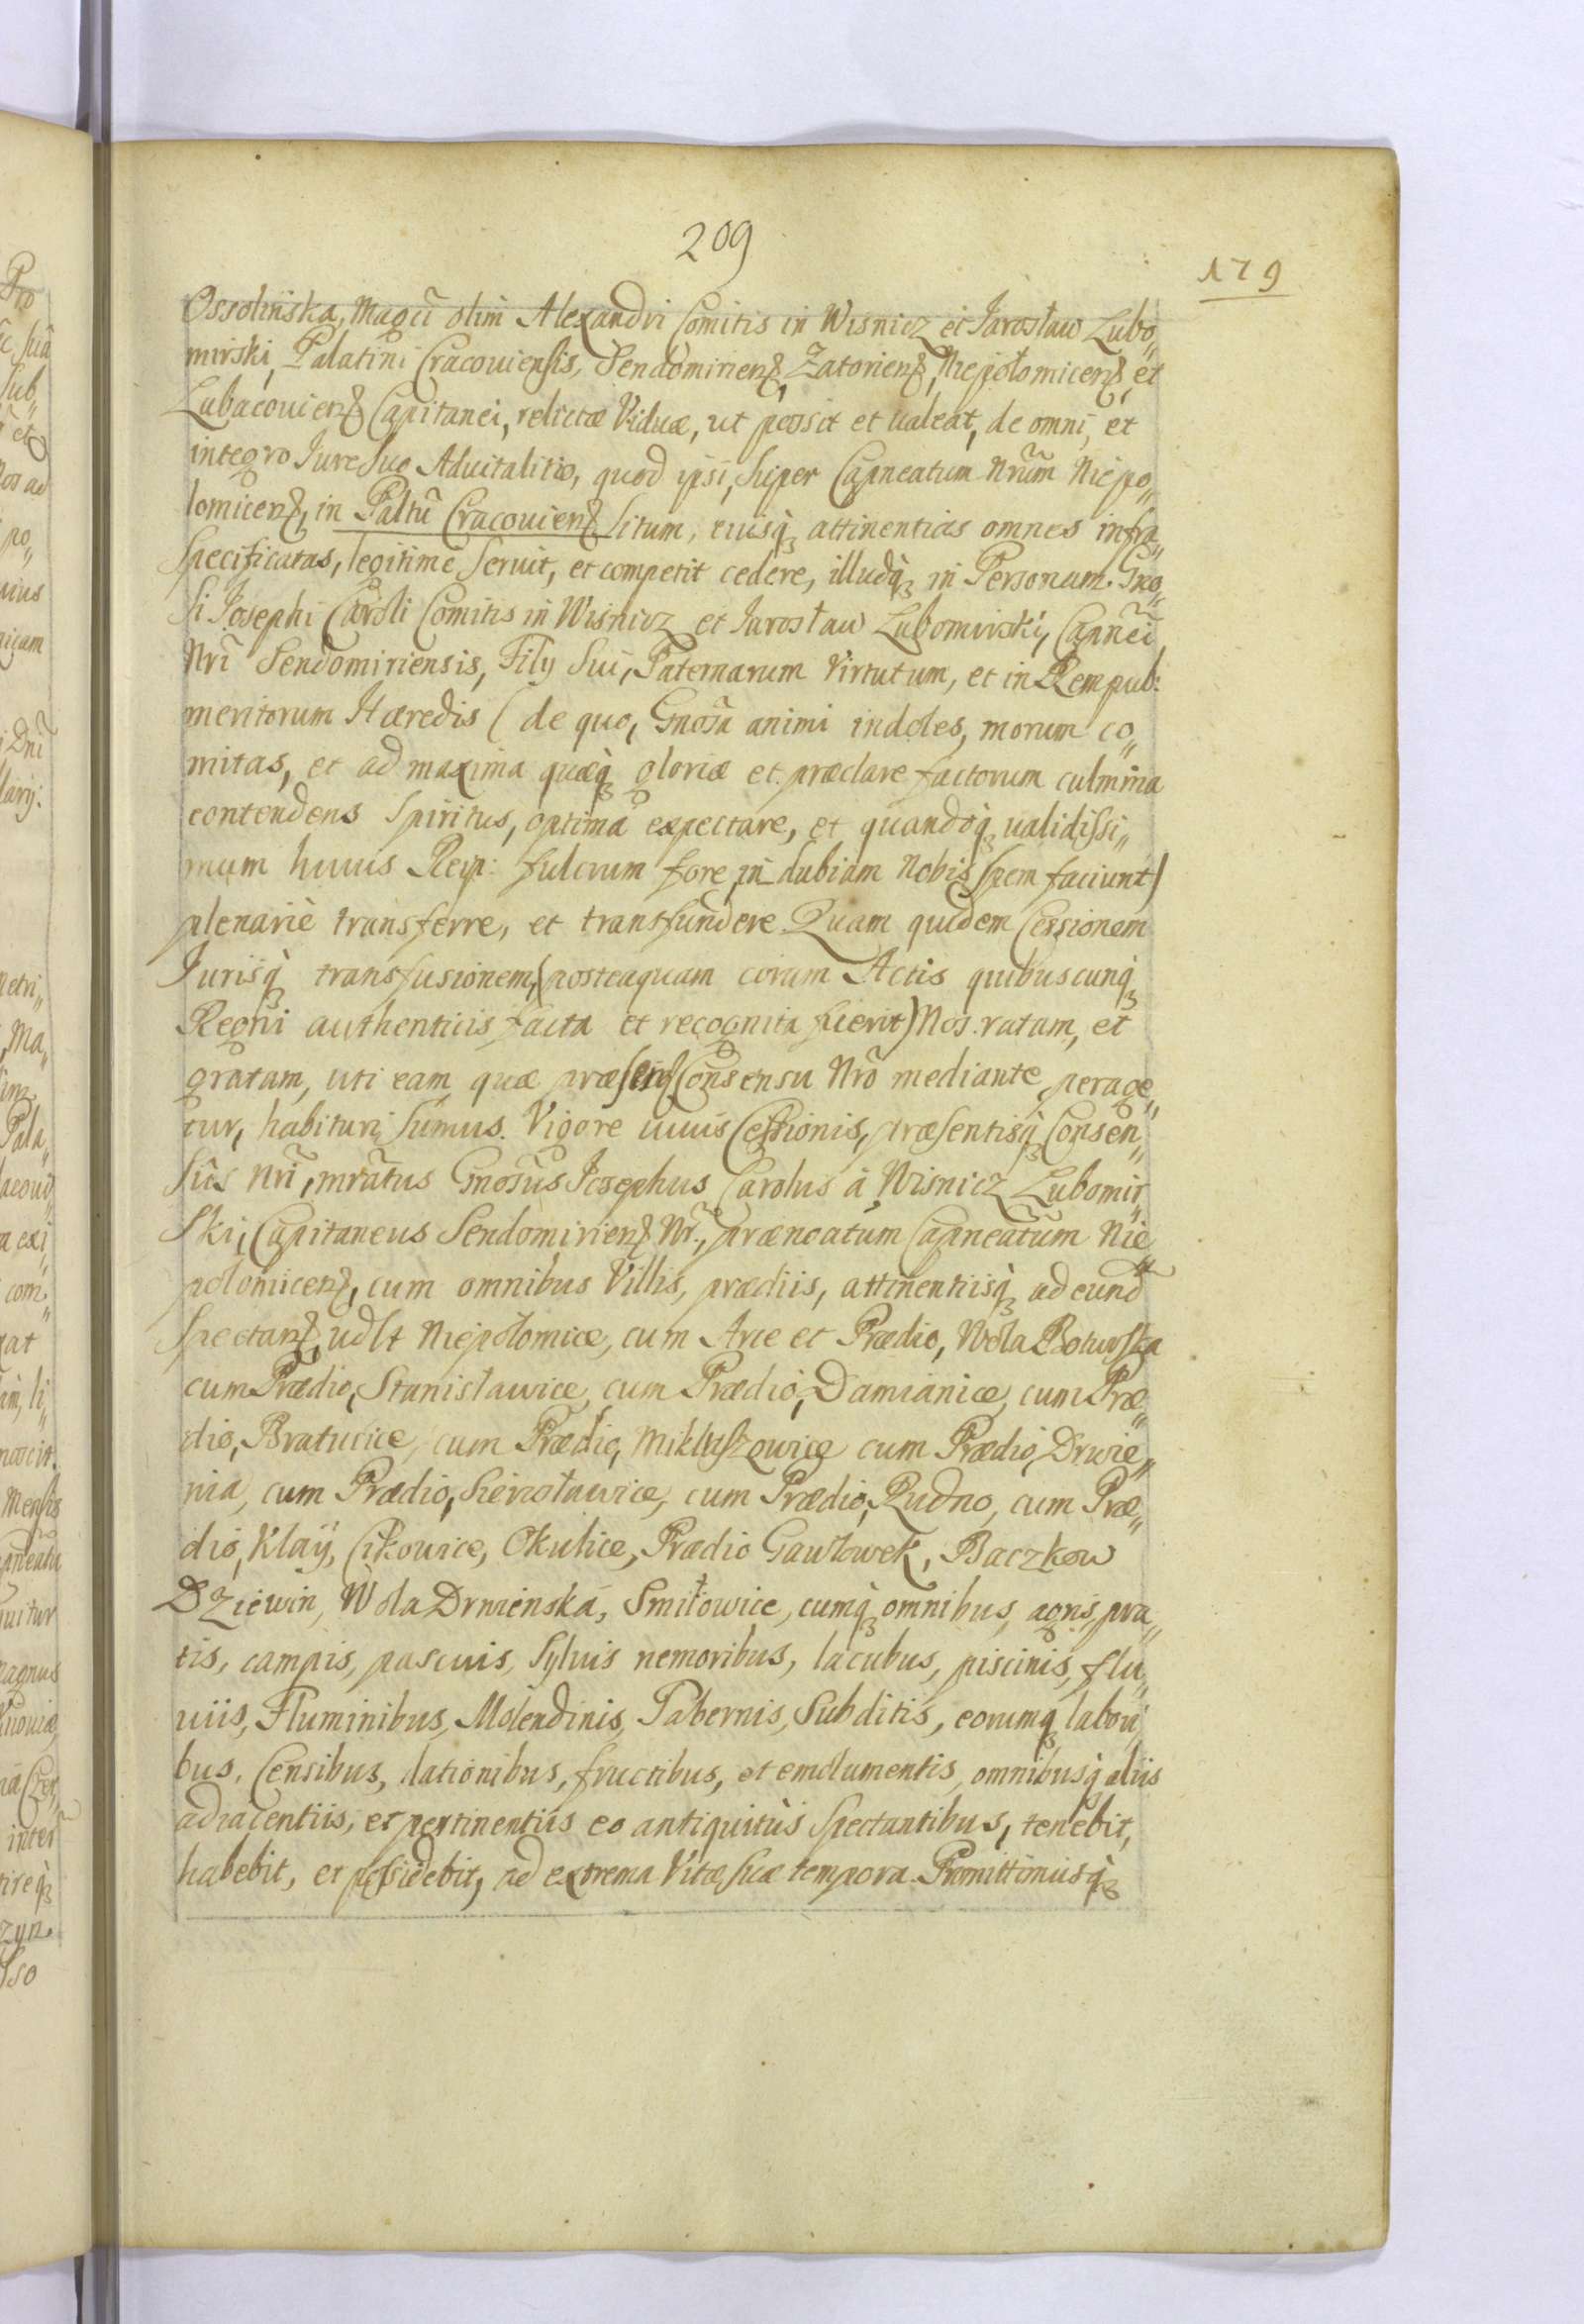 209
179
Ossolinska, Magci olim Alexandri Comitis in Wisnicz et Jarosław Lubo„
mirski, Palatini Cracouiensis, Sendomirienß, Zatorienß, Niepołomicenß, et
Lubacouienß Capitanei, relictæ Viduæ, ut possit et ualeat, de omni, et
integro Jure Suo Aduitalitio, quod ipsi, Super Capneatum Nrũm Niepo„
lomicenß, in Paltũ Cracouienß Situm, eiusq̃ attinentias omnes infra„
Specificatas, legitime Seruit, et competit cedere, illudq̃ in Personam Gno„
Si Josephi Caroli Comitis in Wisnicz et Jarosław Lubomirski, Capnẽi
Nrĩ Sendomiriensis, Filÿ Sui, Paternarum Virtutum, et in Rempub:
meritorum Hæredis ( de quo, Gnosa animi indoles, morum co„
mitas, et ad maxima quæq̃ gloriæ et præclare factorum culmina
contendens Spiritus, optima expectare, et quandoq̃ ualidissi„
mum huius Reip: fulcrum fore, in dubiam Nobis Spem faciunt)
plenariè transferre, et transfundere. Quam quidem Cessionem
Jurisq̃ transfusionem, (posteaquam coram Actis quibuscunq̃
Regni authenticis facta et recognita fuerit) Nos ratam, et
gratam, uti eam quæ præsenß Consensu Nrõ mediante perage„
tur, habituri Sumus. Vigore cuius Cessionis, præsentisq̃ Consen„
Sûs Nrĩ, mrãtus Gnosus Josephus Carolus à Wisnicz Lubomir„
Ski, Capitaneus Sendomirienß Nr., prænoatum Capneatũm Nie„
polomicenß, cum omnibus Villis, prædiis, attinentiisq̃ ad eund
Spectanß, udlt Niepołomice, cum Arce et Prædio, Wola Batorska
cum Prædio, Stanisławice cum Prædio, Damianice, cum Præ„
dio, Bratucice, cum Prædio, Mikluszowice cum Prædio, Drwie„
nia, cum Prædio, Sierosławice, cum Prædio, Rudno, cum Præ„
dio, Kłaÿ, Cikowice, Okulice, Prædio Gawłowek, Baczkow
Dziewin, Wola Drwienska, Smiłowice, cumq̃ omnibus, agris, pra„
tis, campis, pascuis, Syluis nemoribus, lacubus, piscinis, flu„
uiis, Fluminibus, Molendinis, Tabernis, Subditis, eorumq̃ labori„
bus, Censibus, dationibus, fructibus, et emolumentis, omnibusq̃ aliis
adiacentiis, et pertinentiis eo antiquitùs Spectantibus, tenebit,
habebit, et possidebit, ad extrema Vitæ Suæ tempora. Promittimusq̃